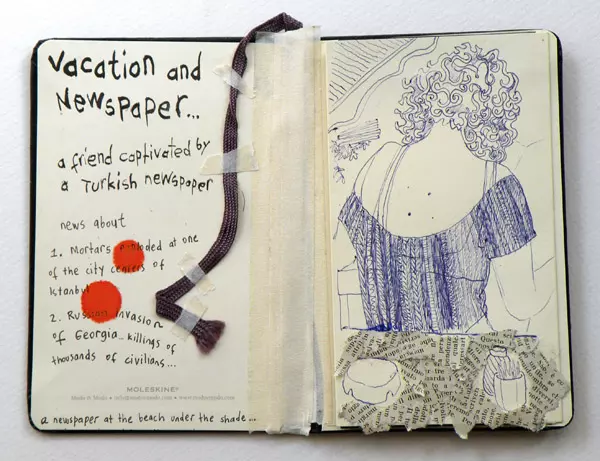 Vacation and
Newspaper...
a friend captivated by
a Turkish newspaper
news about
1. Mortars exploded at one
of the city centers of
Istanbul
2. Russian invasion
of Georgia_ killings of
thousands of civilians...
MOLESKINE®
Modo & Modo • info@modoemodo.com • www.modoemodo.com
a newspaper at the beach under the shade...
Questo